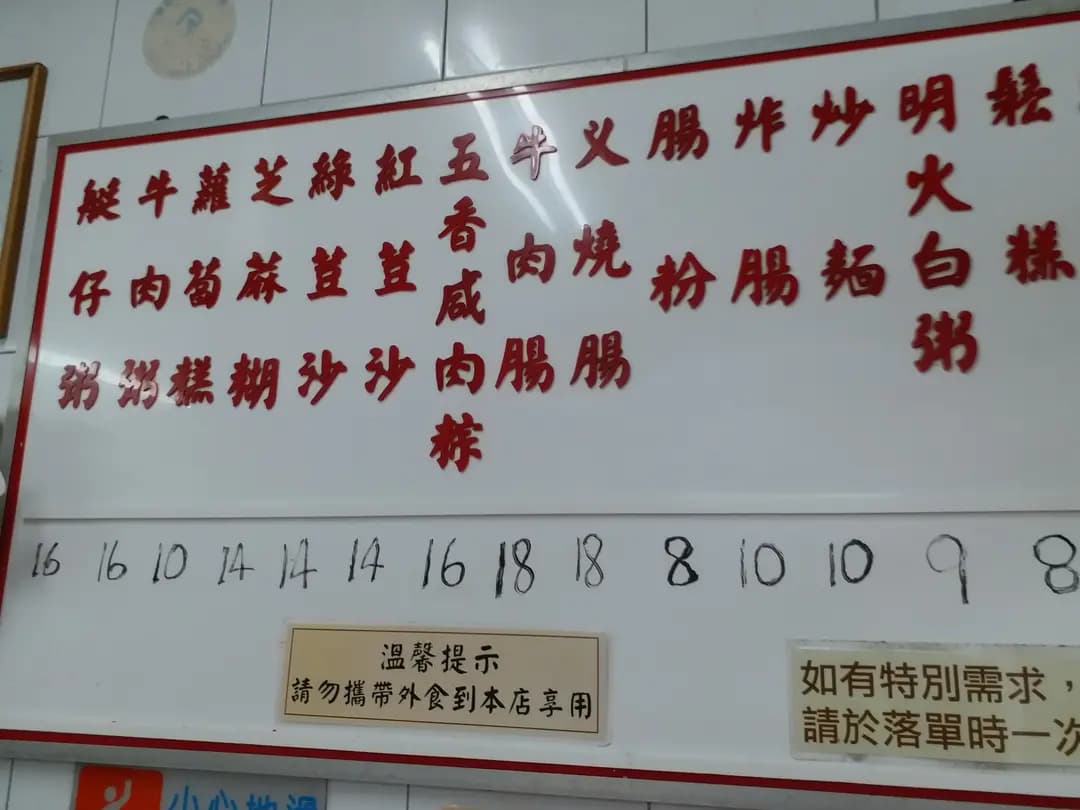 鬆糕
明火白粥
炒麵
炸腸
腸粉
义燒腸
牛肉腸
五香咸肉粽
紅荳沙
綠荳沙
芝蔴糊
蘿蔔糕
牛肉粥
艇仔粥
16 16 10 14 14 14 16 18 18 8 10 10 9 8
溫馨提示
請勿攜帶外食到本店享用
如有特別需求，
請於落單時一次
小心地滑